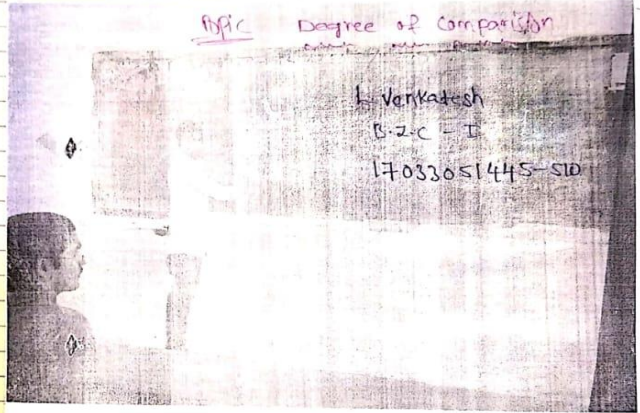 Topic Degree of Comparision
L Venkatesh
B.Z.C - I
17033051445-510